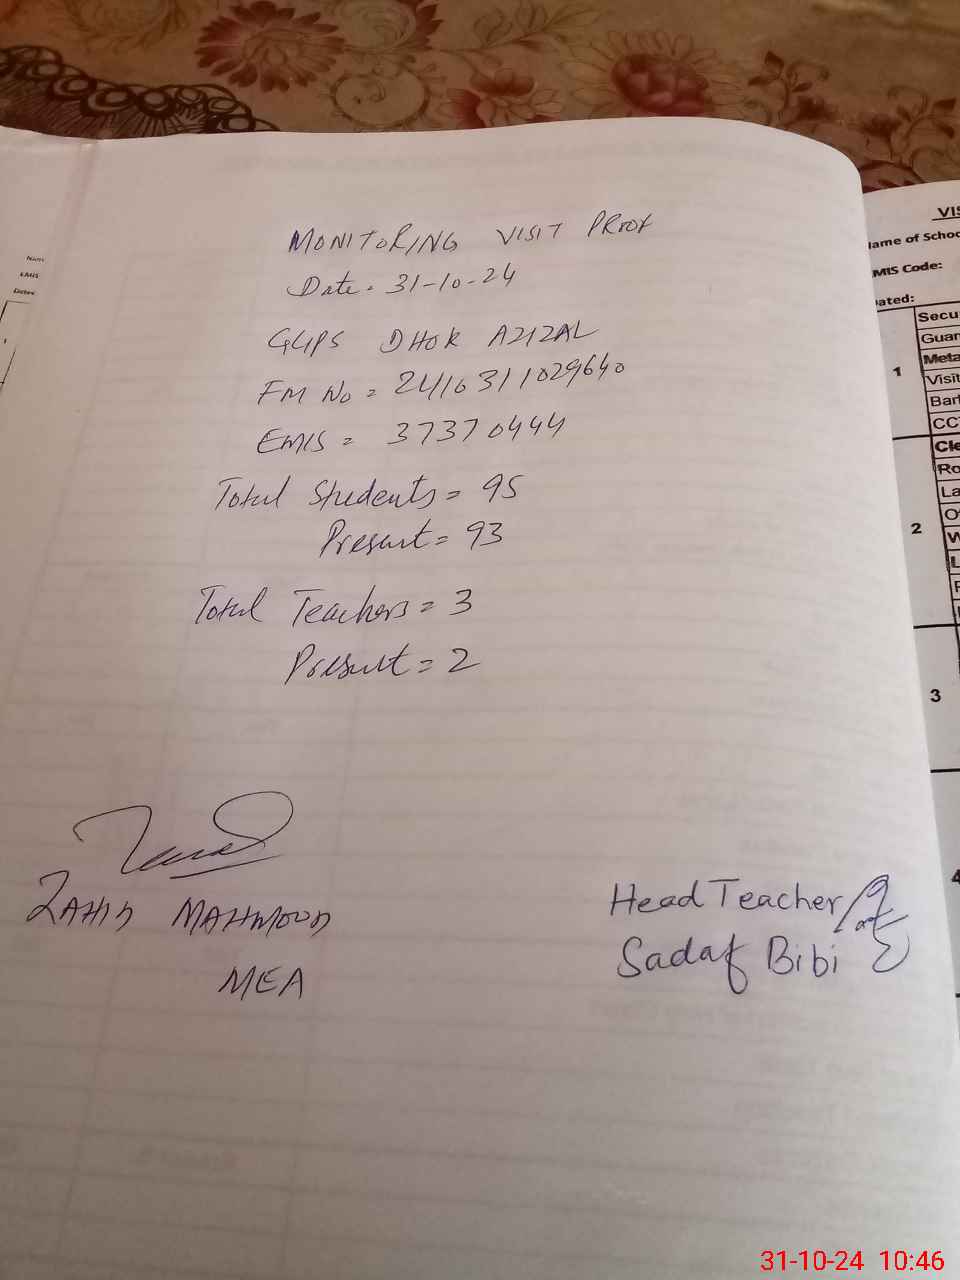 MONITORING VISIT PROOF
Date. 31-10-24
GGPS DHOK AZIZAL
FM No = 2416311029640
EMIS = 37370444
Total Students = 95
Present = 93
Total Teachers = 3
Present = 2
ZAHID MAHMOOD
MEA
Head Teacher
Sadaf Bibi
VIS
ame of Schoo
MIS Code:
ated:
1
Secu
Guar
Meta
Visit
Bar
CC
2
Cle
Ro
La
3
4
31-10-24 10:46